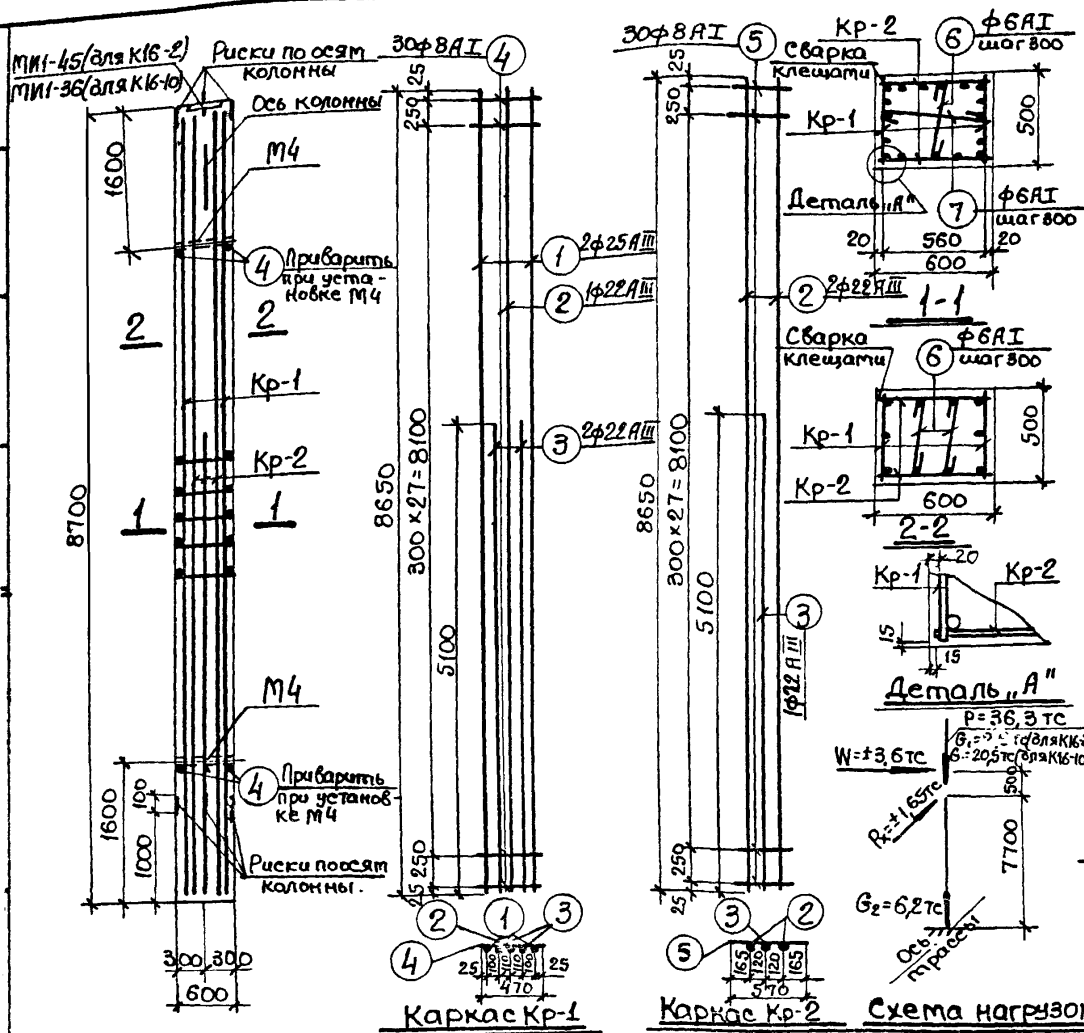 МИ1-45(для К16-2)
МИ1-36(для К16-10)
Риски по осям
колонны
Ось колонны
М4
1600
4
Приварить
при уста-
новке М4
2
2
Кр-1
Кр-2
8700
1
1
М4
4
Приварить
при установ-
ке М4
1600
100
1000
Риски по осям
колонны.
300
300
600
30ф8АI
4
25
250
1
2ф25АIII
2
1ф22АIII
3
2ф22АIII
8650
300×27=8100
5100
250
25
2
1
3
4
25
100
110
110
100
25
470
Каркас Кр-1
30ф8АI
5
25
250
2
2ф22АIII
8650
300×27=8100
5100
3
1ф22АIII
250
25
3
2
5
165
120
120
165
570
Каркас Кр-2
Кр-2
6
ф6АI
шаг 300
Сварка
клещами
Кр-1
500
Деталь „А"
7
ф6АI
шаг 300
20
560
20
600
1-1
Сварка
клещами
6
ф6АI
шаг 300
Кр-1
500
Кр-2
600
2-2
20
Кр-1
Кр-2
15
15
Деталь „А"
Р=36,3 тс
(для К16-
=20,5тс(для К16-10
W=±3,6тс
500
=±1,65тс
7700
G₂=6,2тс
Ось
трассы
Схема нагрузок